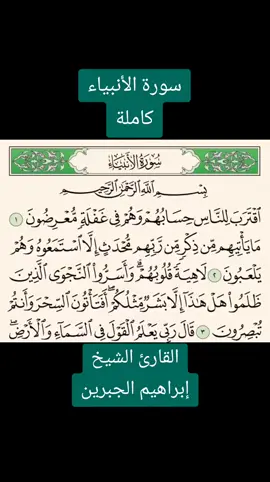 سورة الأنبياء
كاملة
سُورَةُ الأَنبِيَاءِ
بِسْمِ اللَّهِ الرَّحْمَٰنِ الرَّحِيمِ
ٱقْتَرَبَ لِلنَّاسِ حِسَابُهُمْ وَهُمْ فِى غَفْلَةٍ مُّعْرِضُونَ ١
مَا يَأْتِيهِم مِّن ذِكْرٍ مِّن رَّبِّهِم مُّحْدَثٍ إِلَّا ٱسْتَمَعُوهُ وَهُمْ
يَلْعَبُونَ ٢ لَاهِيَةً قُلُوبُهُمْ ۗ وَأَسَرُّوا۟ ٱلنَّجْوَى ٱلَّذِينَ
ظَلَمُوا۟ هَلْ هَٰذَآ إِلَّا بَشَرٌ مِّثْلُكُمْ ۖ أَفَتَأْتُونَ ٱلسِّحْرَ وَأَنتُمْ
تُبْصِرُونَ ٣ قَالَ رَبِّى يَعْلَمُ ٱلْقَوْلَ فِى ٱلسَّمَآءِ وَٱلْأَرْضِ ۖ
القارئ الشيخ
إبراهيم الجبرين